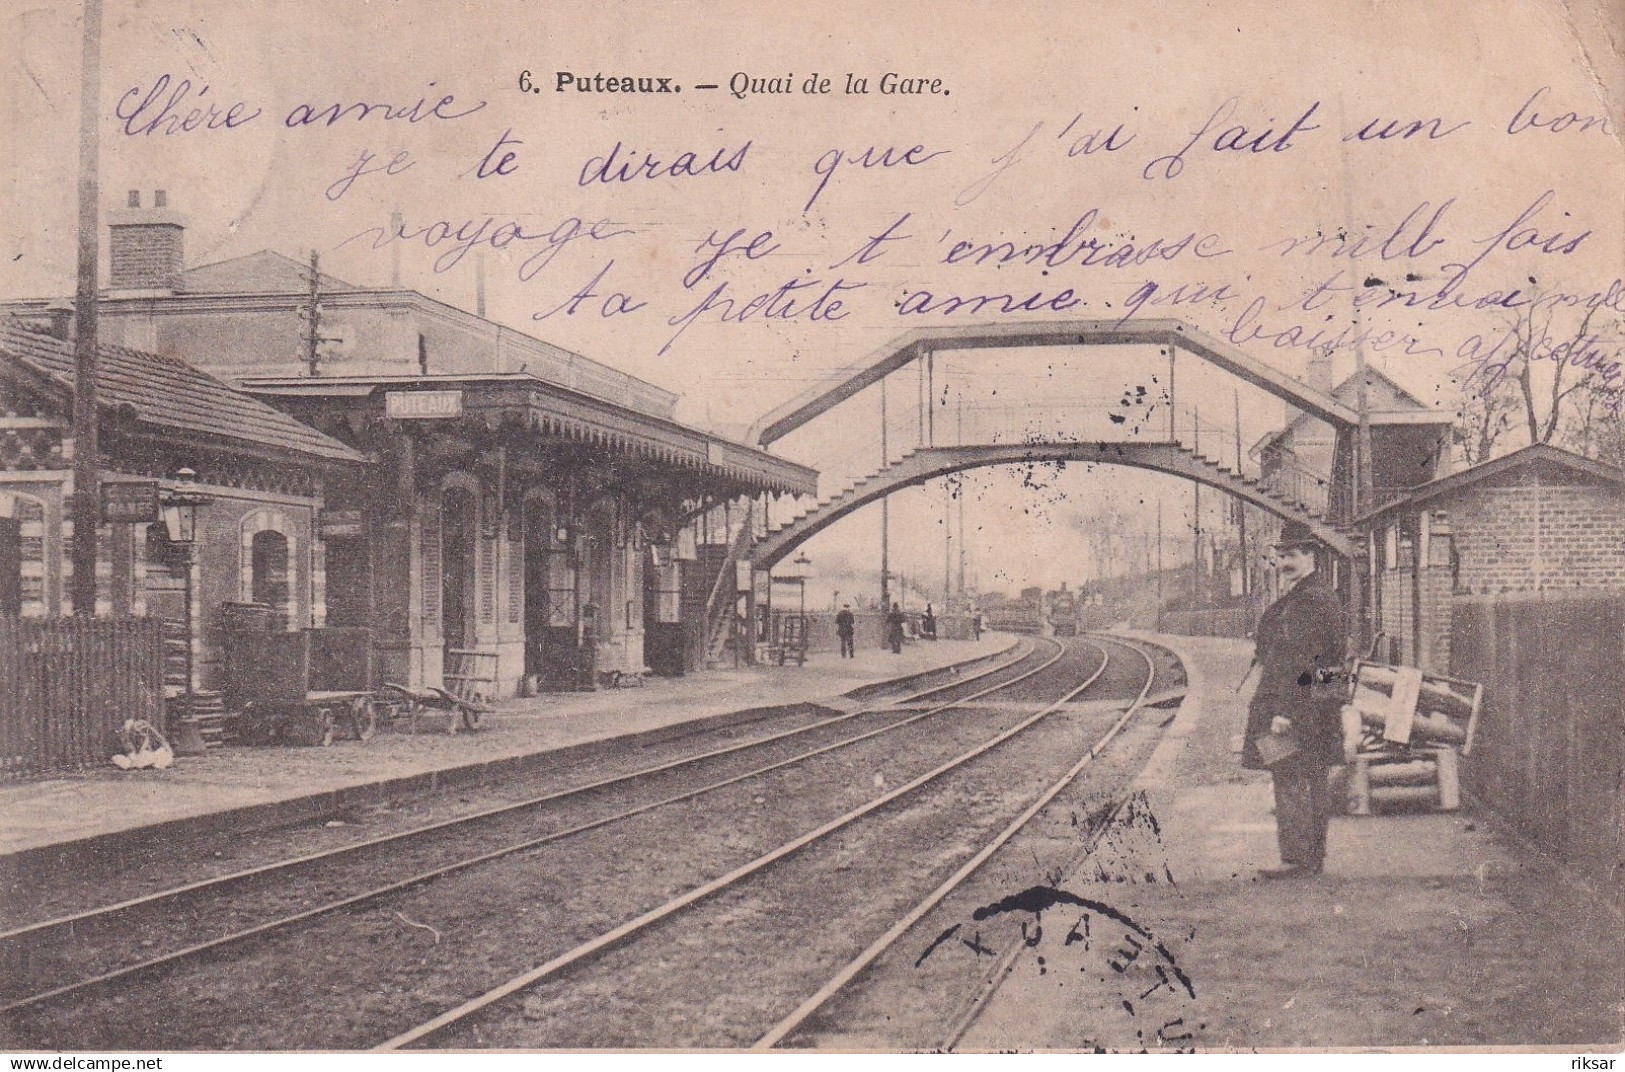 6. Puteaux. — Quai de la Gare.
Chére amie
je te dirais que j'ai fait un bon
voyage je t'embrasse mill fois
ta petite amie qui t'envoi mille
baisser
PUTEAUX
PUTEAUX
riksar